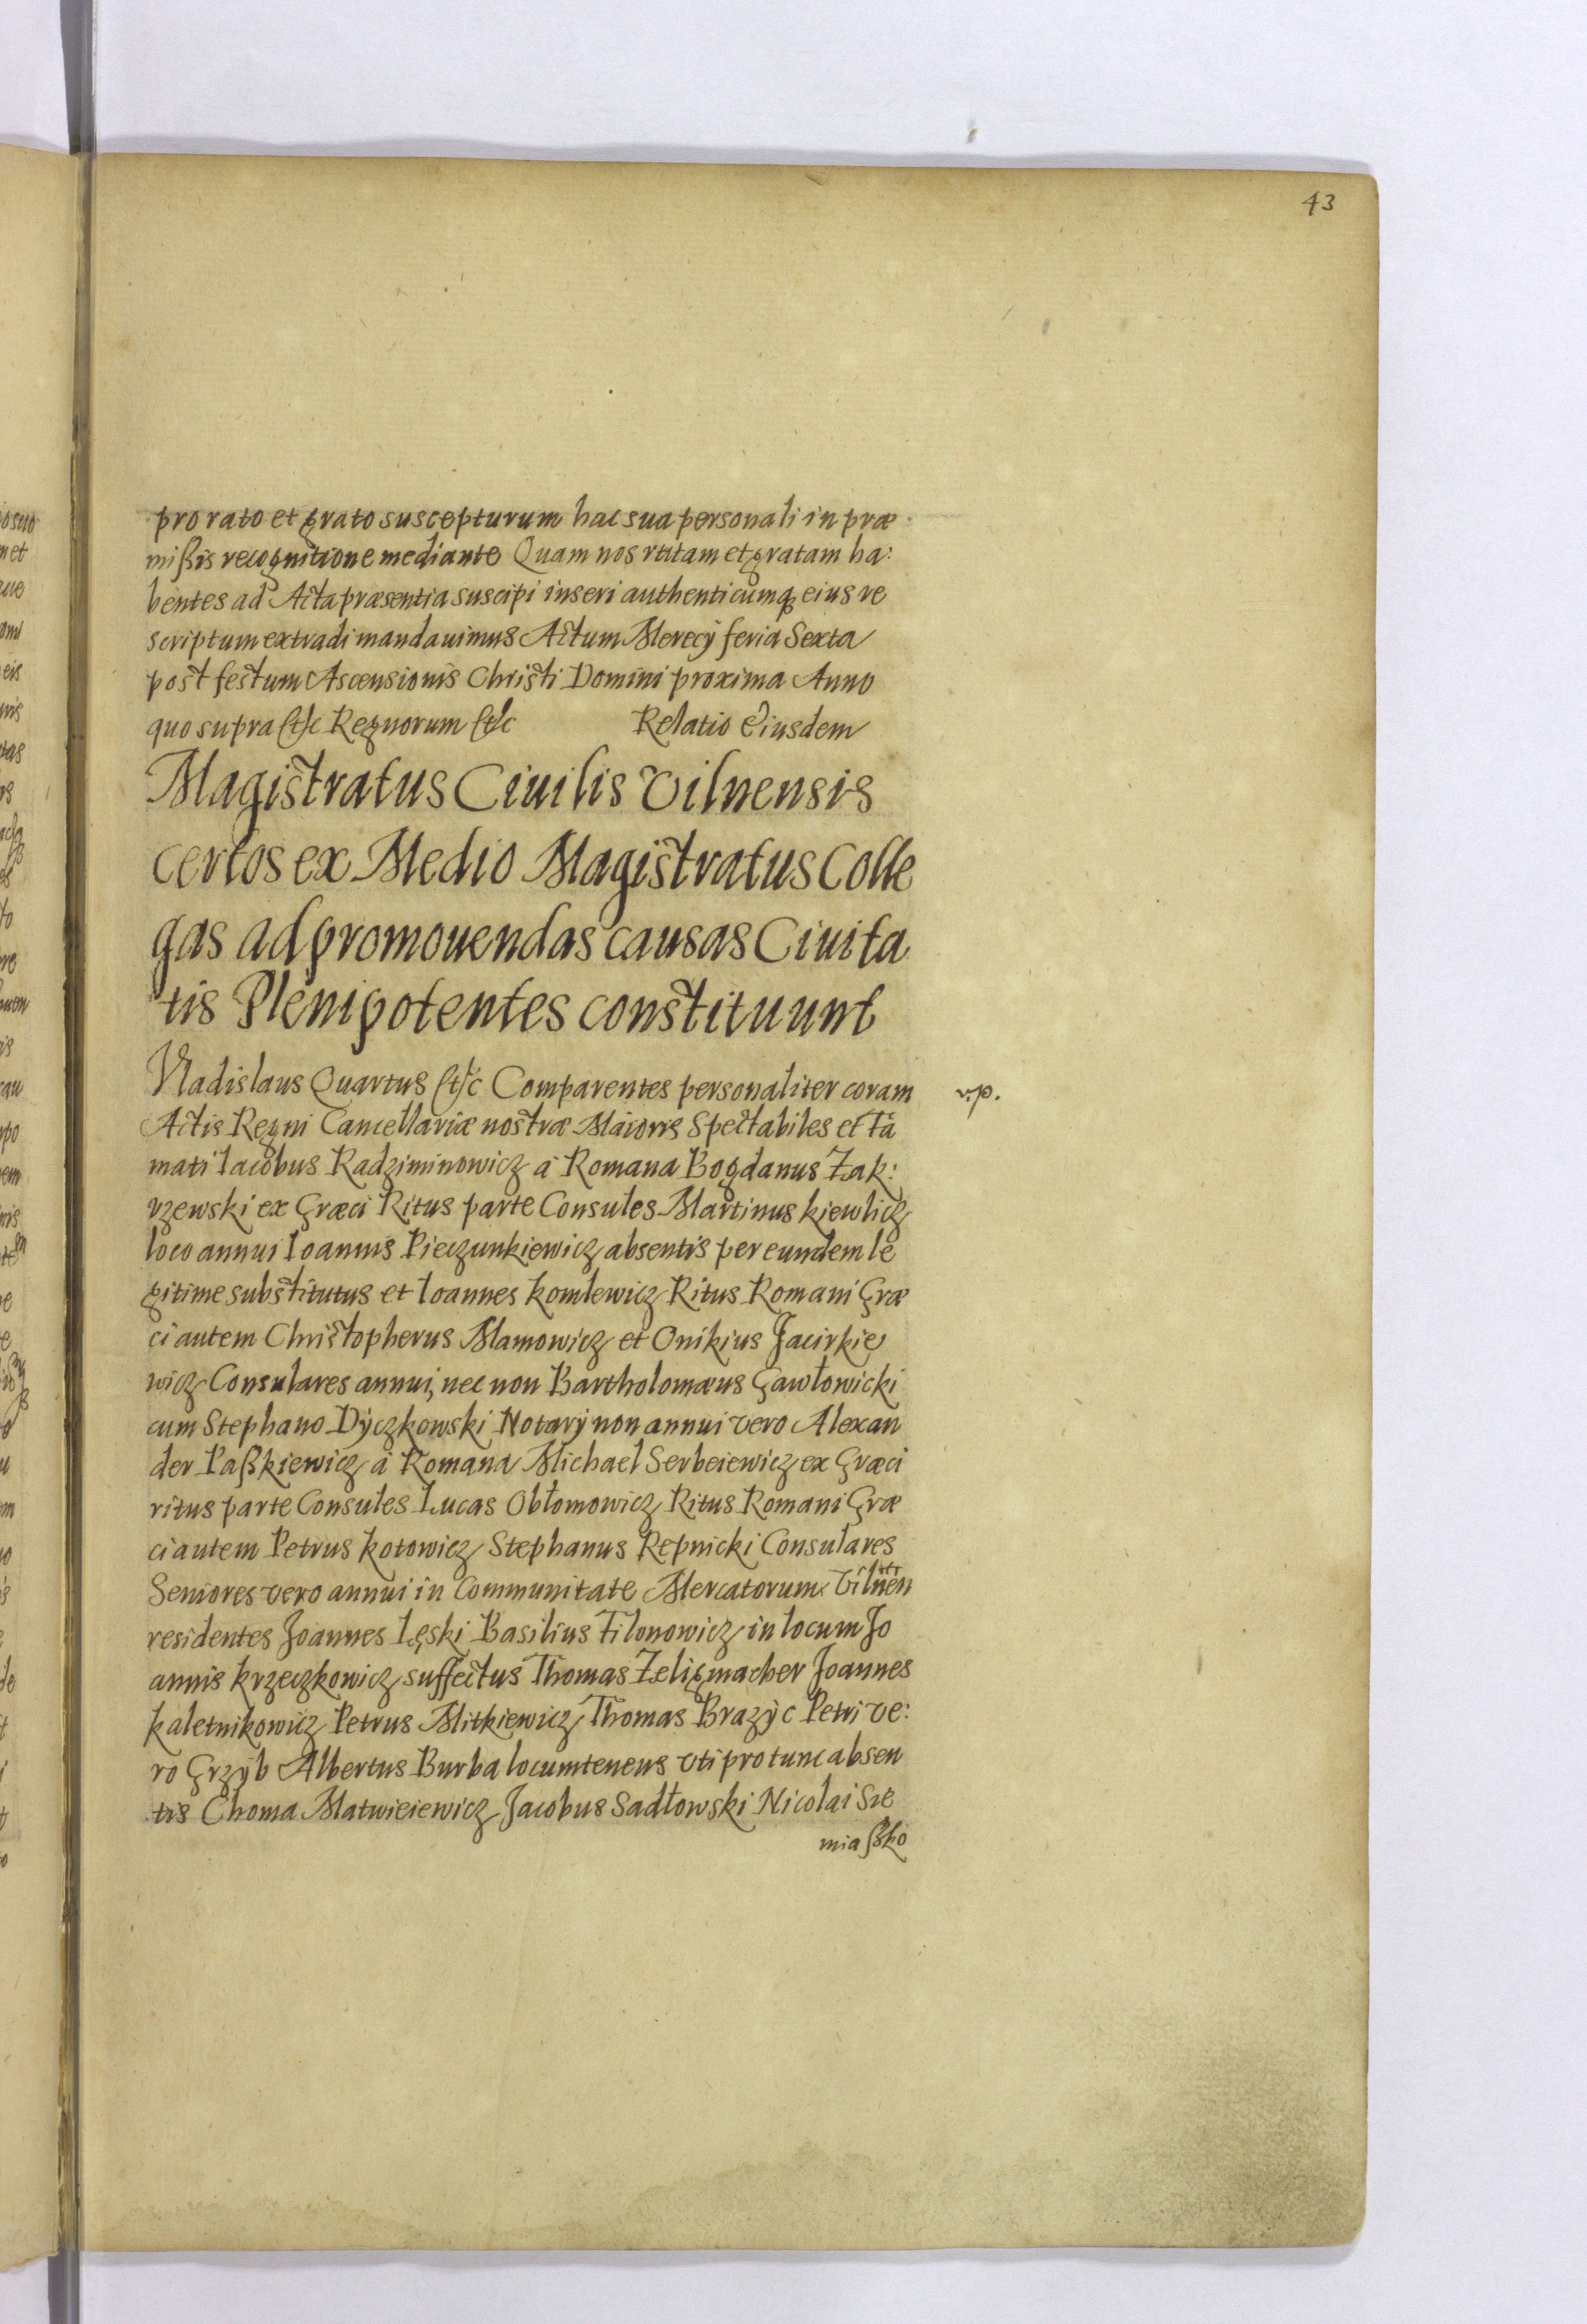 43
pro rato et grato suscepturum hac sua personali in præ
mißis recognitione mediante Quam nos ratam et gratam ha:
bentes ad Acta præsentia suscipi inseri authenticumq eius re
scriptum extradi mandauimus Actum Merecÿ feria Sexta
post festum Ascensionis Christi Domini proxima Anno
quo supra etc Regnorum etc Relatio Eiusdem
Magistratus Ciuilis Vilnensis
certos ex Medio Magistratus Colle
gas ad promouendas causas Ciuita
tis Plenipotentes constituunt
Vladislaus Quartus etc Comparentes personaliter coram
v.p.
Actis Regni Cancellariæ nostræ Maioris Spectabiles et fa
mati Iacobus Radziminowicz à Romana Bogdanus Zak:
rzewski ex Græci Ritus parte Consules Martinus kiewlicz
loco annui Ioannis Pieczunkiewicz absentis per eundem le
gitime substitutus et Ioannes komlewicz Ritus Romani Græ
ci autem Christopherus Mamowicz et Onikius Jacirkie
wicz Consulares annui, nec non Bartholomæus Gawłowicki
cum Stephano Dÿczkowski Notarÿ non annui vero Alexan
der Paßkiewicz à Romana Michael Serbeiewicz ex Græci
ritus parte Consules Lucas Obłomowicz Ritus Romani Græ
ci autem Petrus kotowicz Stephanus Repnicki Consulares
Seniores vero annui in Communitate Mercatorum Vilnen
residentes Joannes Lęski Basilius Filonowicz in locum Jo
annis krzeczkowicz suffectus Thomas Zeligmacher Joannes
kaletnikowicz Petrus Mitkiewicz Thomas Brazÿc Petri ve:
ro Grzÿb Albertus Burba locumtenens vti pro tunc absen
tis Choma Matwieiewicz Jacobus Sadłowski Nicolai Sie
miaßko